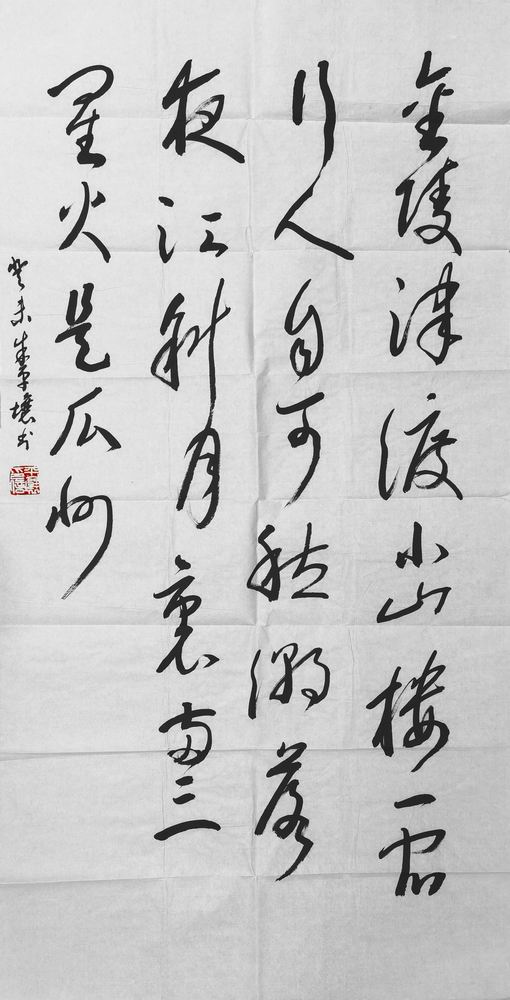 金陵津渡小山楼一宿
行人自可愁潮落
夜江斜月裏两三
星火是瓜州
癸未书